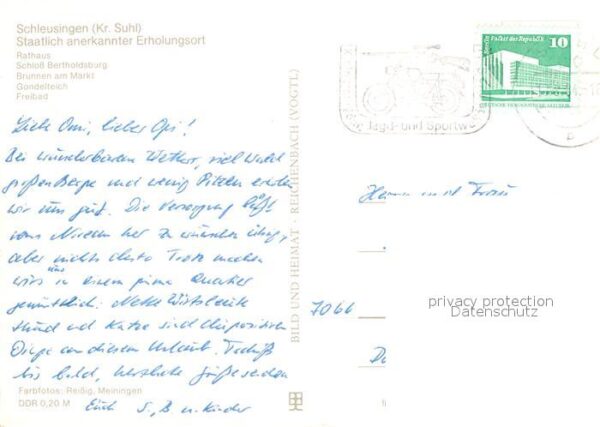 Schleusingen (Kr. Suhl)
Staatlich anerkannter Erholungsort
Rathaus
Schloß Bertholdsburg
Brunnen am Markt
Gondelteich
Freibad
Liebe Omi, lieber Opi!
Bei wunderbarem Wetter, viel Wald
großen Berge und wenig Pilzen erholen
wir uns gut. Die Versorgung läßt
vom Niveau her zu wünschen übrig,
aber nichts desto Trotz machen
wirs uns in einem prima Quartier
gemütlich. Nette Wirtsleute
Hund und Katze sind die positiven
Dinge an diesem Urlaub. Tschüß
bis bald, herzliche Grüße senden
Euch S., B. u. Kinder
Farbfotos: Reißig, Meiningen
DDR 0,20 M
BILD UND HEIMAT · REICHENBACH (VOGTL)
Berlin Palast der Republik
10
DEUTSCHE DEMOKRATISCHE REPUBLIK
Jagd- und Sportw
Herrn und Frau
7066
privacy protection
Datenschutz